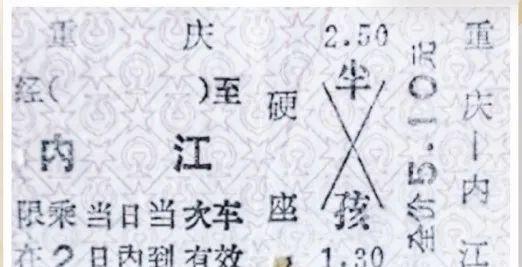 重庆
经( )至
内江
限乘当日当次车
在2日内到有效
硬座
2.50
半
孩
1.30
全价5.10元
重庆—内江